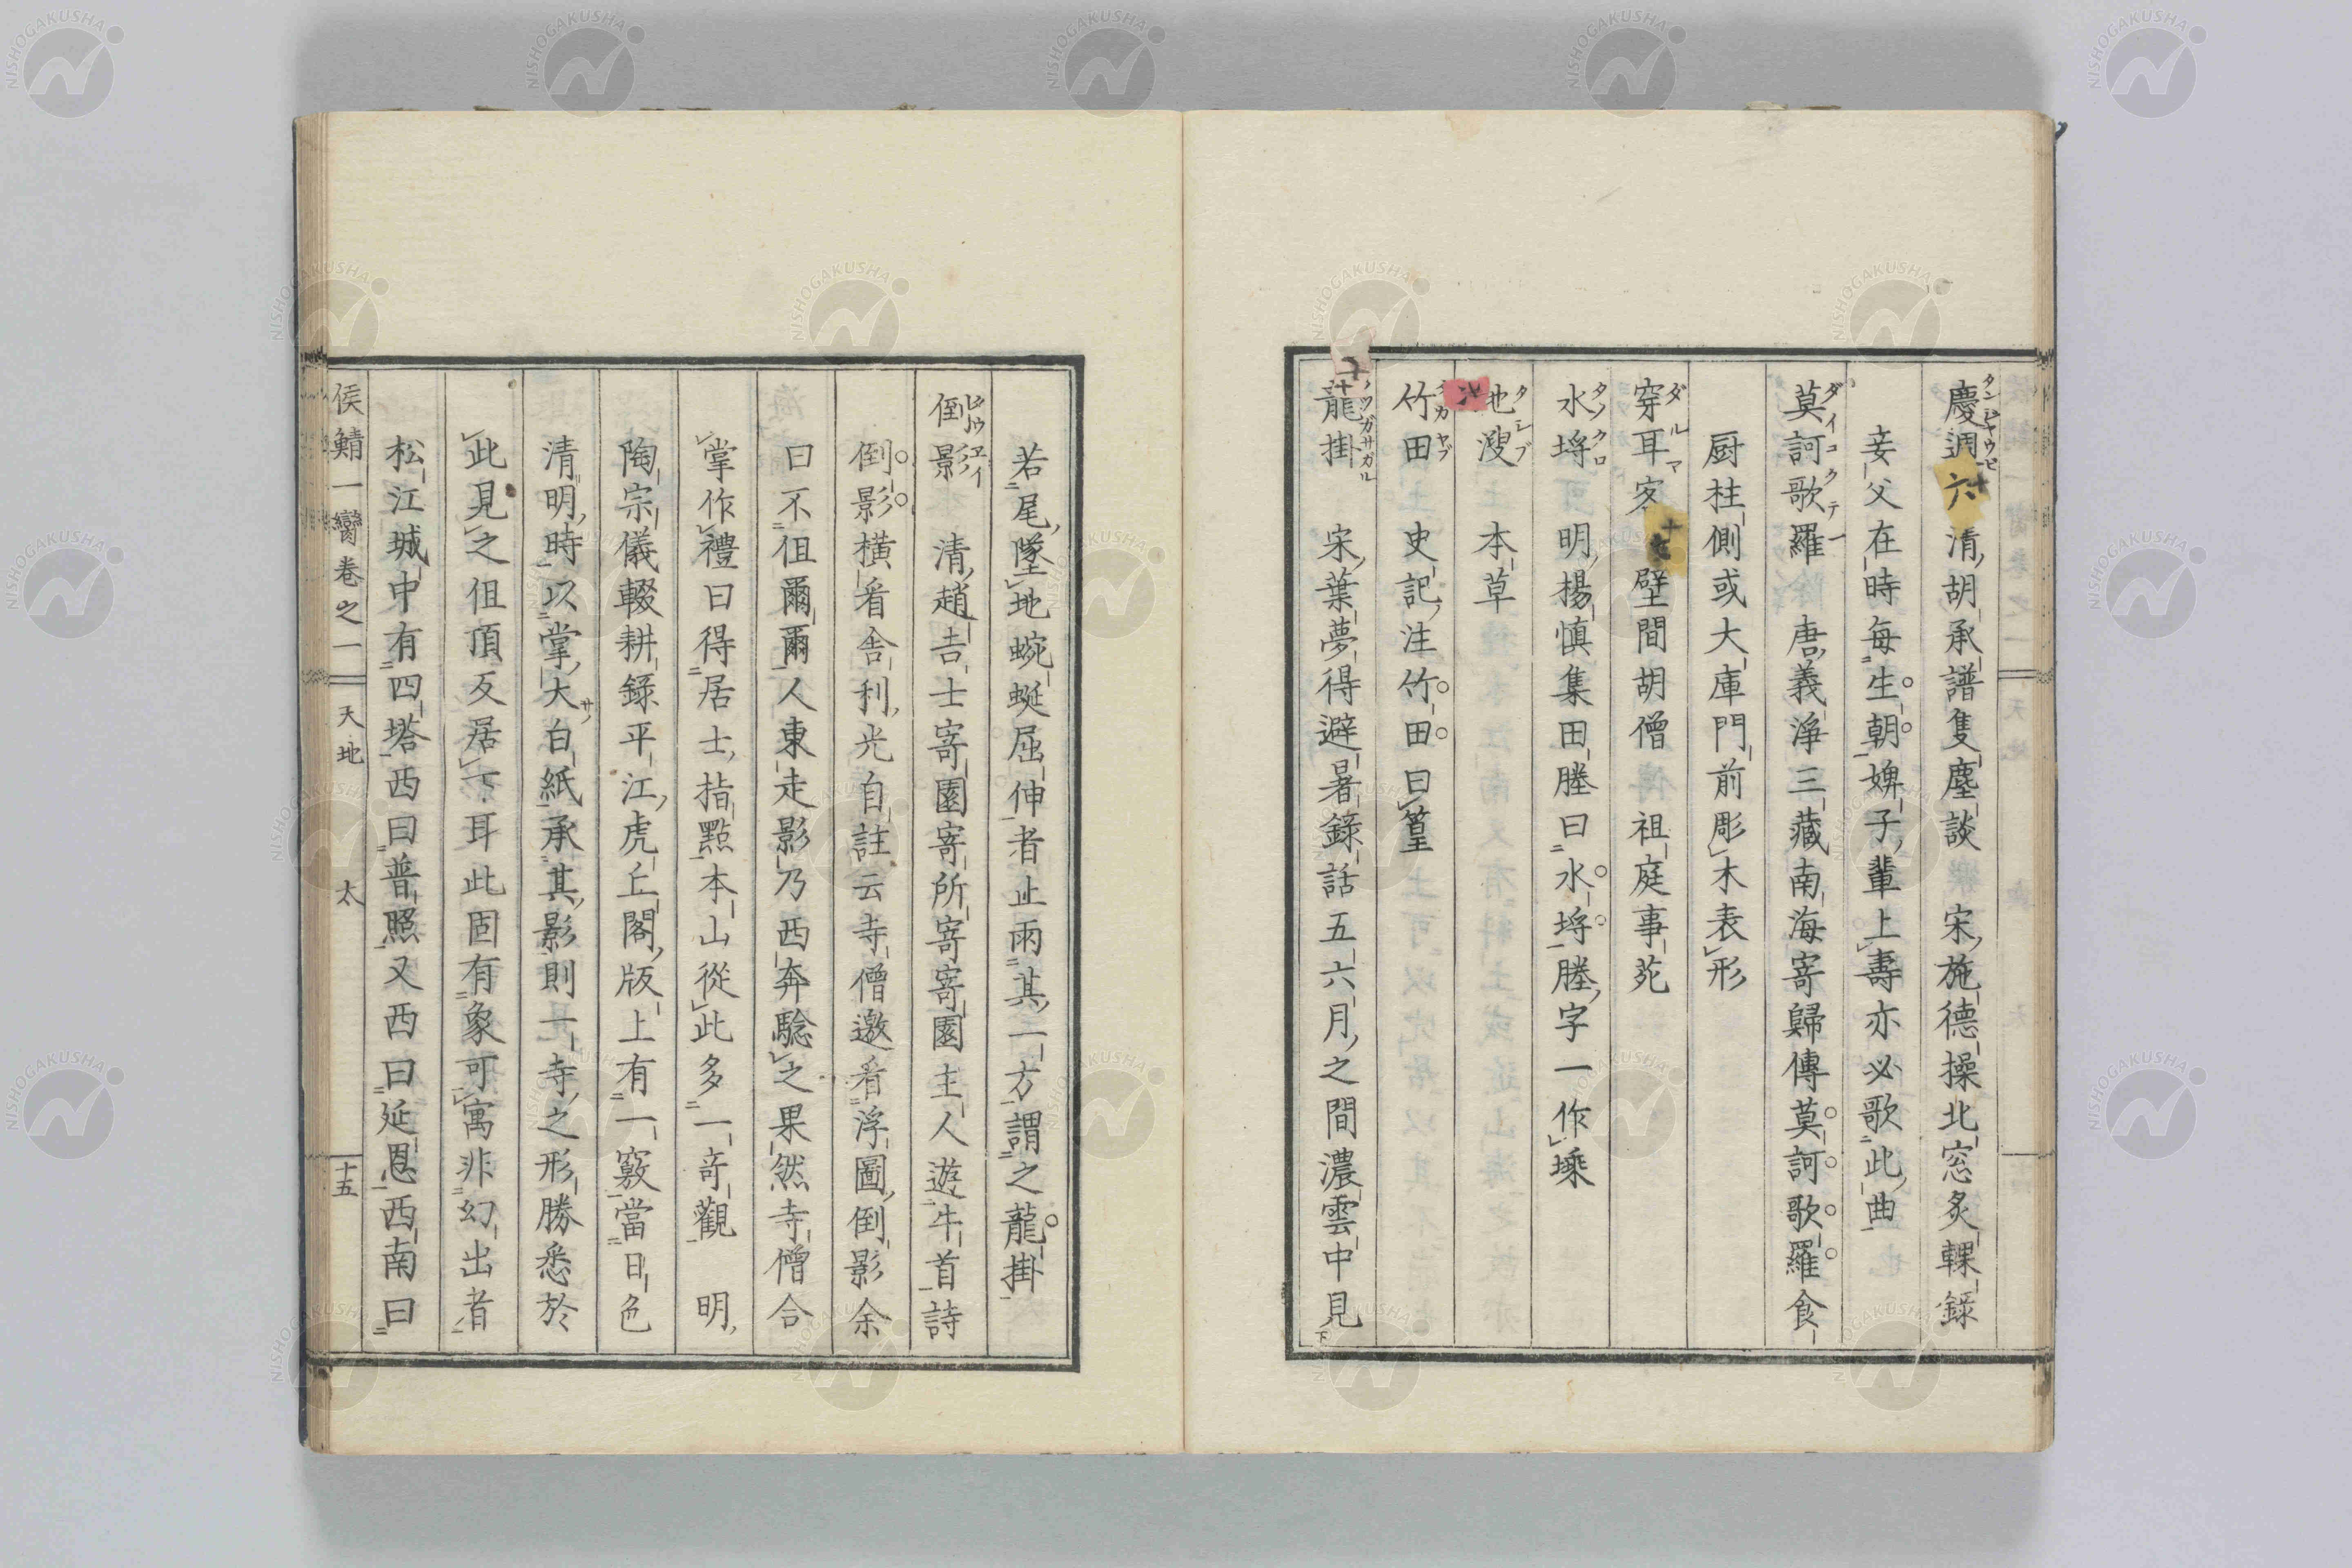 慶週六 清胡承譜隻塵談 宋施德操北窓炙輠錄
妾父在時每生朝婢子輩上壽亦必歌此曲
莫訶歌羅 唐義淨三藏南海寄歸傳莫訶歌羅食
厨柱側或大庫門前彫木表形
穿耳客 壁間胡僧 祖庭事苑
水埓 明楊慎集田塍曰水埓塍字一作堘
地溲 本草
竹田 史記注竹田曰篁
龍掛 宋葉夢得避暑錄話五六月之間濃雲中見
若尾墜地蜿蜒屈伸者止雨其一方謂之龍掛
倒影 清趙吉士寄園寄所寄寄園主人遊牛首詩
倒影橫看舍利光自註云寺僧邀看浮圖倒影余
曰不但爾爾人東走影乃西奔驗之果然寺僧合
掌作禮曰得居士指點本山從此多一奇觀 明
陶宗儀輟耕錄平江虎丘閣版上有一竅當日色
清明時以掌大白紙承其影則一寺之形勝悉於
此見之但頂反居下耳此固有象可寓非幻出者
松江城中有四塔西曰普照又西曰延恩西南曰
侯鯖一臠卷之一 天地 太 十五
NISHOGAKUSHA